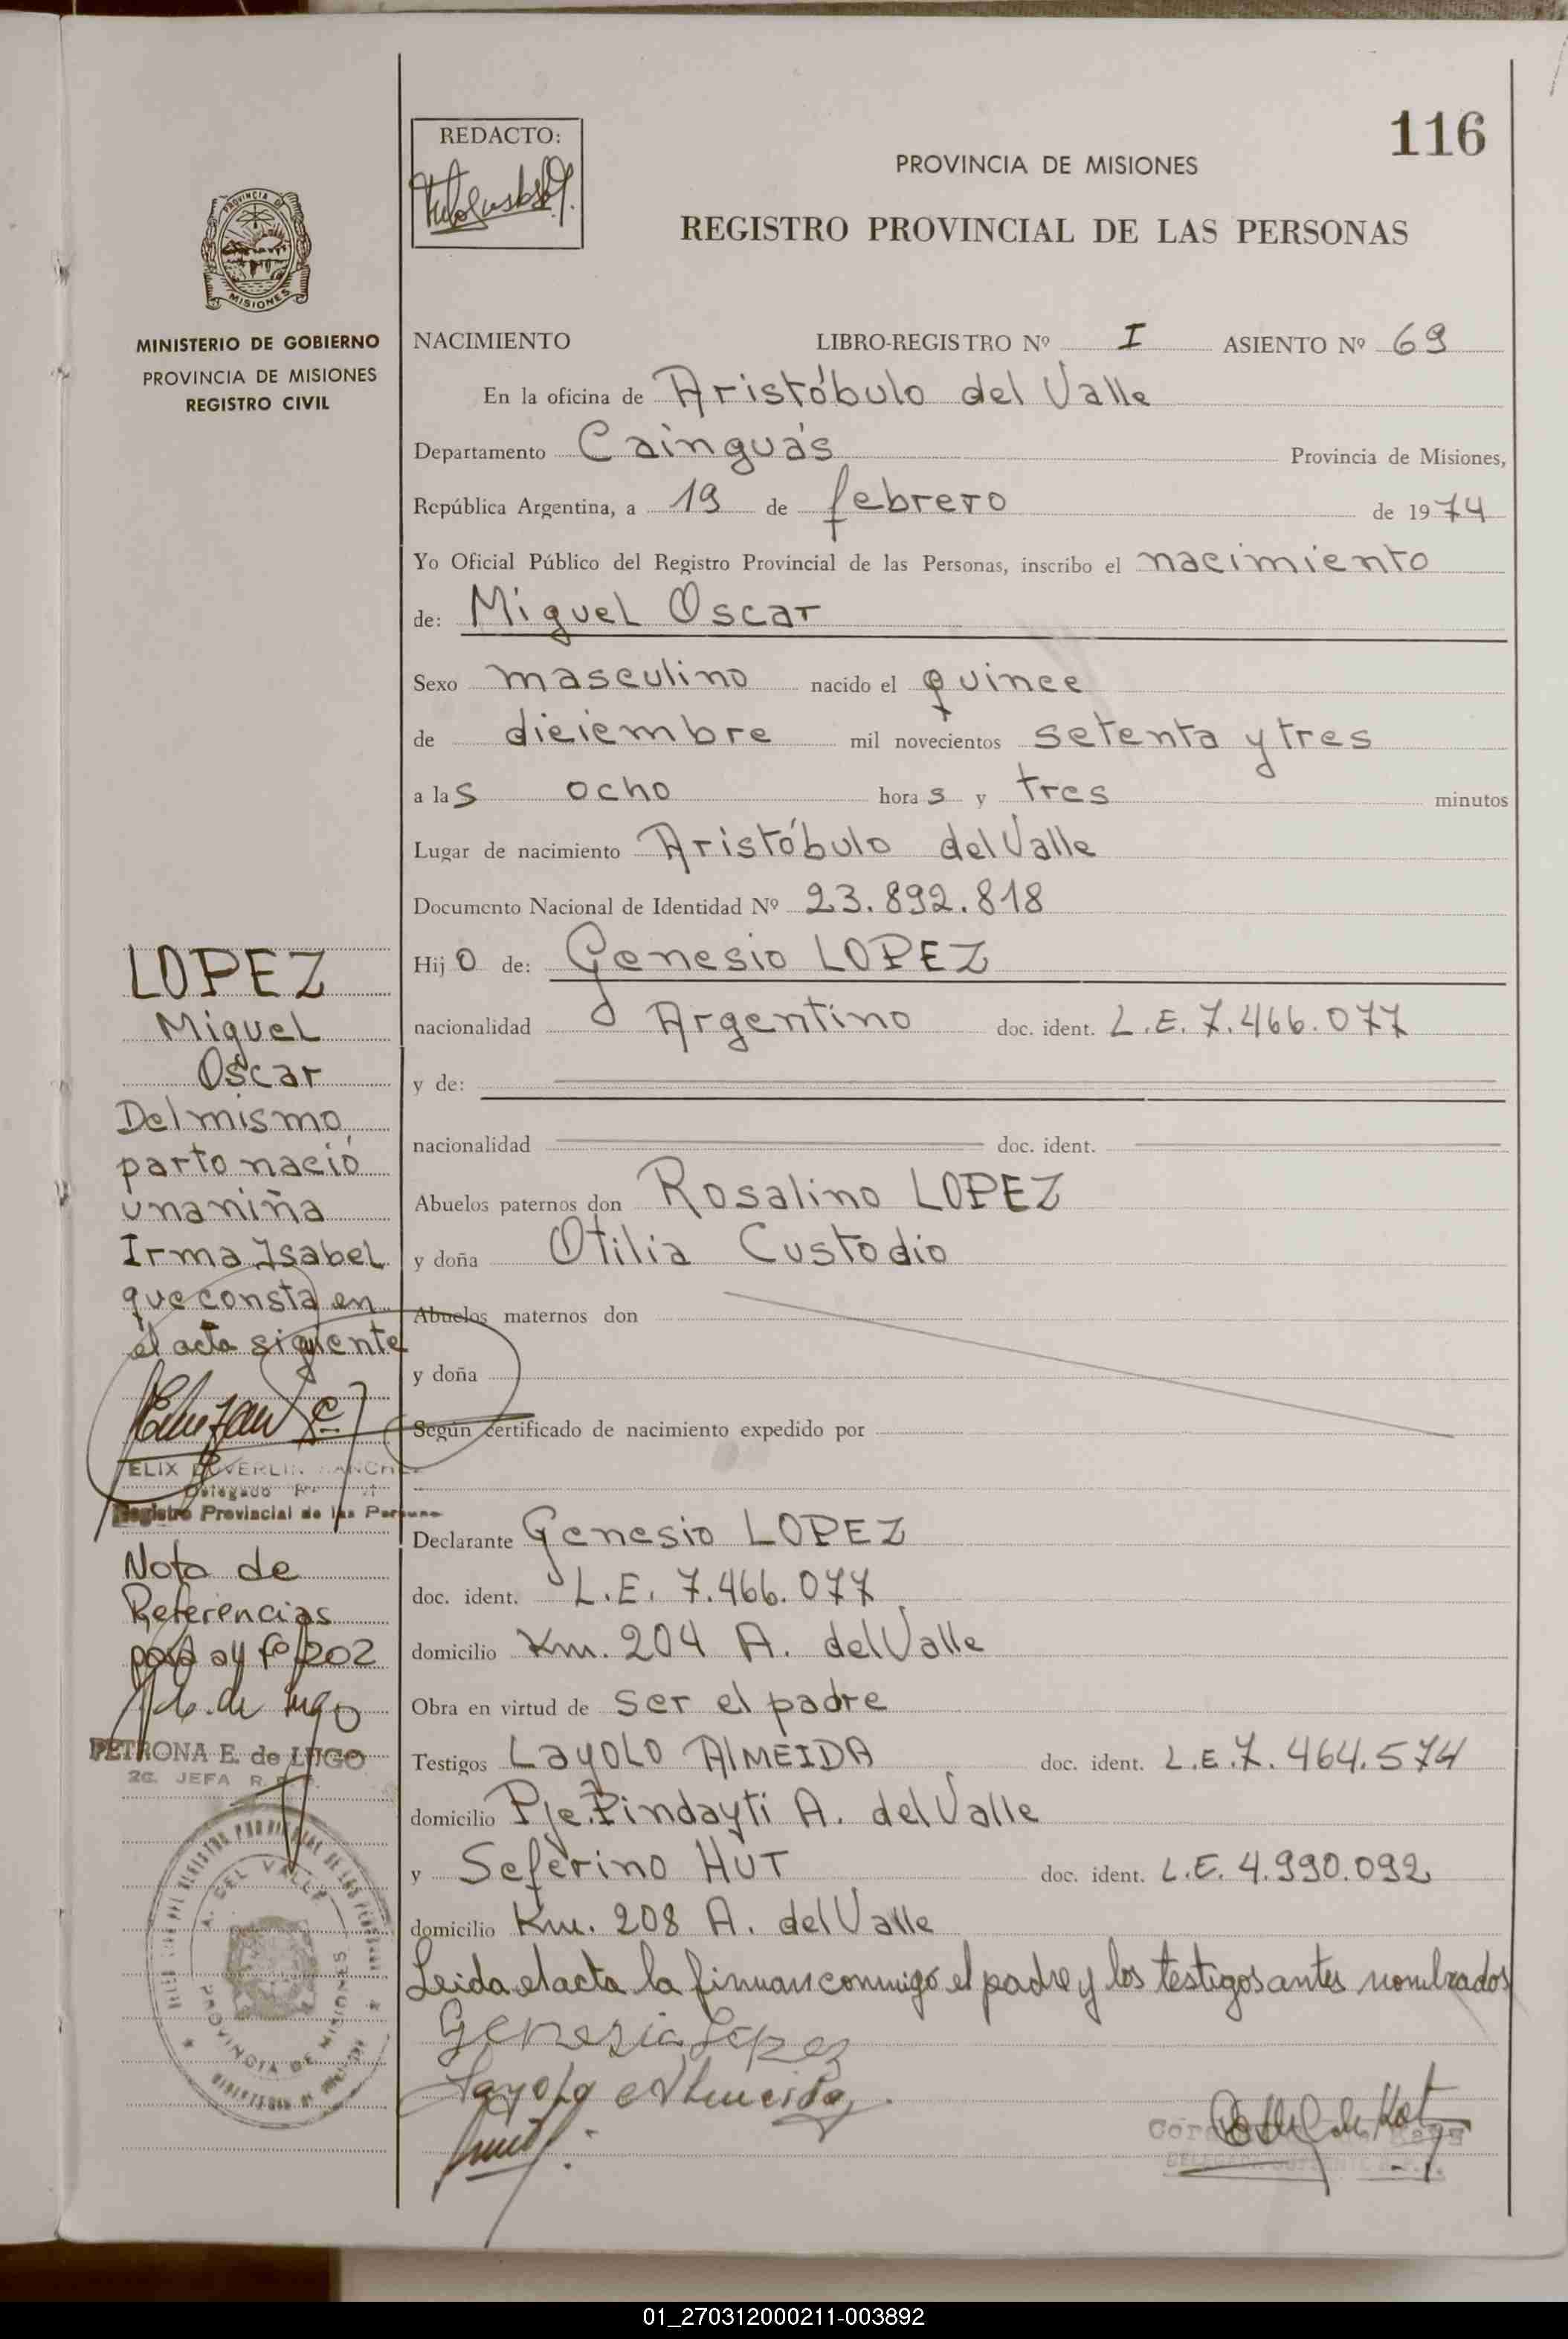 116
REDACTO:
PROVINCIA DE MISIONES
REGISTRO PROVINCIAL DE LAS PERSONAS
MISIONES
MINISTERIO DE GOBIERNO
PROVINCIA DE MISIONES
REGISTRO CIVIL
NACIMIENTO LIBRO-REGISTRO Nº I ASIENTO Nº 69
En la oficina de Aristóbulo del Valle
Departamento Cainguás Provincia de Misiones,
República Argentina, a 19 de febrero de 1974
Yo Oficial Público del Registro Provincial de las Personas, inscribo el nacimiento
de: Miguel Oscar
Sexo masculino nacido el quince
de diciembre mil novecientos setenta y tres
a las ocho horas y tres minutos
Lugar de nacimiento Aristóbulo del Valle
Documento Nacional de Identidad Nº 23.892.818
Hijo de: Genesio LOPEZ
nacionalidad Argentino doc. ident. L.E. 7.466.077
y de:
nacionalidad doc. ident.
Abuelos paternos don Rosalino LOPEZ
y doña Otilia Custodio
Abuelos maternos don
y doña
Según certificado de nacimiento expedido por
Declarante Genesio LOPEZ
doc. ident. L.E. 7.466.077
domicilio Km. 204 A. del Valle
Obra en virtud de ser el padre
Testigos Layolo ALMEIDA doc. ident. L.E. 7.464.574
domicilio Pje. Pindayti A. del Valle
y Seferino HUT doc. ident. L.E. 4.990.092
domicilio Km. 208 A. del Valle
Leida el acta la firman conmigo el padre y los testigos antes nombrados
Genesio Lopez
Layolo Almeida
LOPEZ
Miguel
Oscar
Del mismo
parto nació
una niña
Irma Isabel
que consta en
el acta siguiente
Registro Provincial de las Personas
Nota de
Referencias
fº 202
PETRONA E. de LUGO
JEFA
A. DEL VALLE
PROVINCIA DE MISIONES
01_270312000211-003892